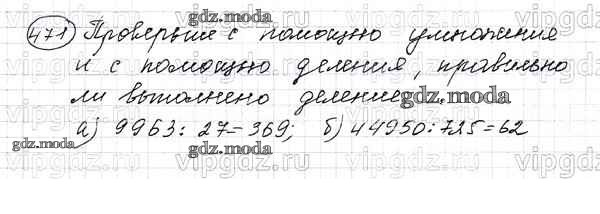 471 Проверьте с помощью умножения
и с помощью деления, правильно
ли выполнено деление
а) 9963 : 27 = 369; б) 44950 : 725 = 62
gdz.moda
gdz.moda
gdz.moda
gdz.moda
vipgdz
vipgdz
vipgdz
vipgdz